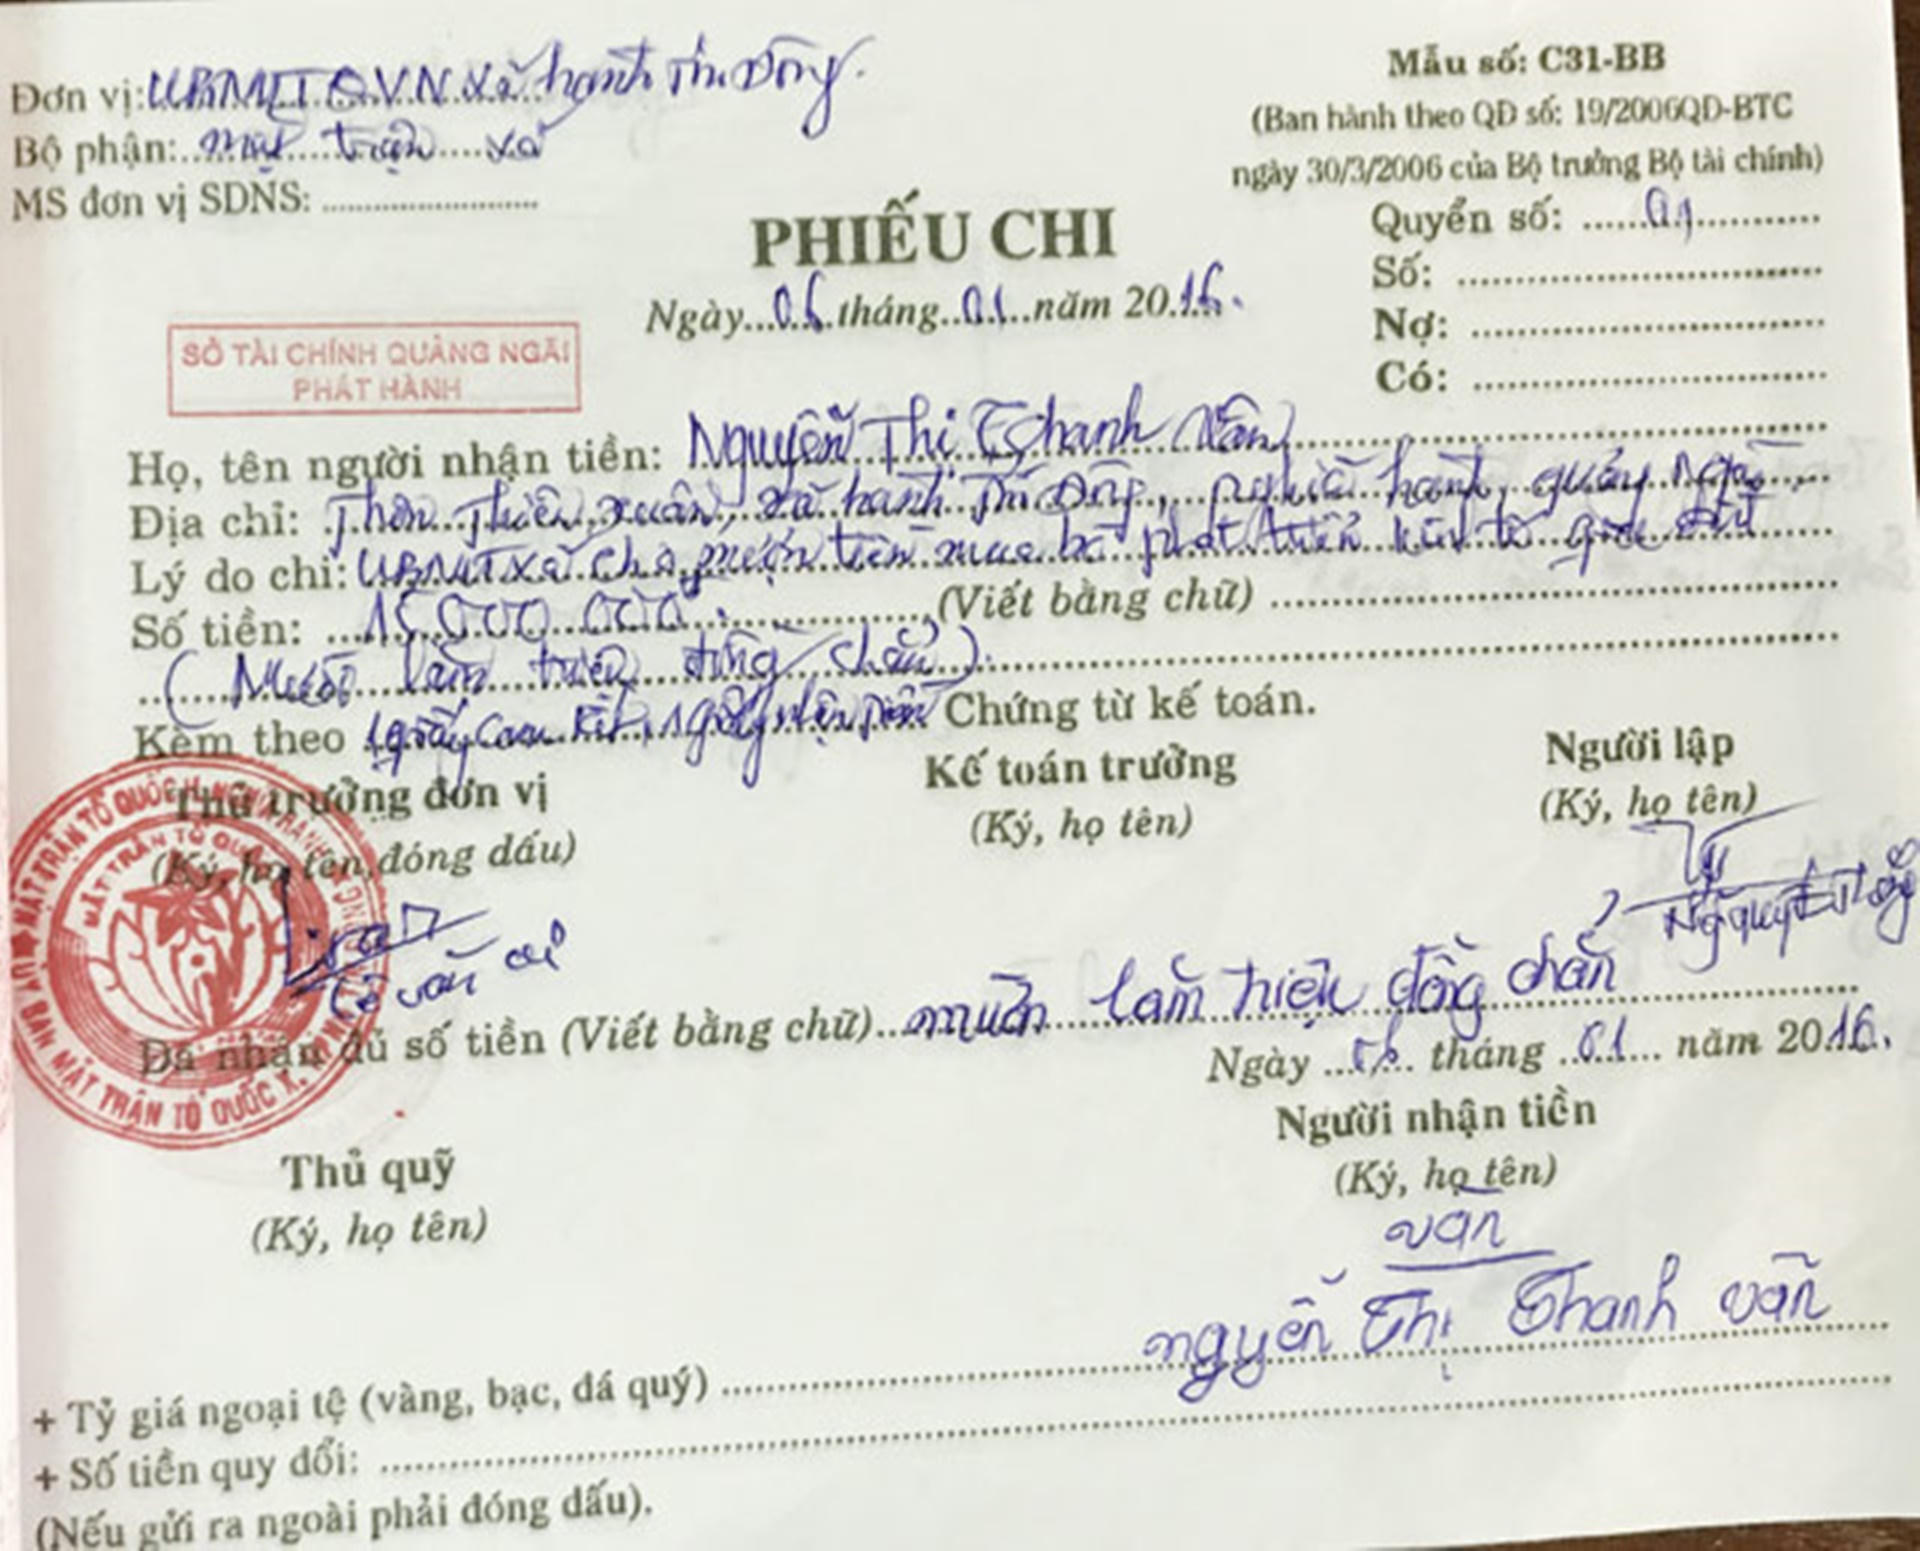 Đơn vị: UBMTTQVN xã hành Tín Đông.
Bộ phận: mặt trận xã
MS đơn vị SDNS: ........................
Mẫu số: C31-BB
(Ban hành theo QĐ số: 19/2006QD-BTC
ngày 30/3/2006 của Bộ trưởng Bộ tài chính)
Quyển số: 01
Số:
Nợ:
Có:
PHIẾU CHI
Ngày 06 tháng 01 năm 2016.
SỞ TÀI CHÍNH QUẢNG NGÃI
PHÁT HÀNH
Họ, tên người nhận tiền: Nguyễn Thị Thanh Vân
Địa chỉ: Thôn Thiên xuân, xã hành Tín Đông, nghĩa hành, quảng Ngãi,
Lý do chi: UBMT xã cho mượn tiền mua bò phát triển kinh tế gia đình
Số tiền: 15.000.000. (Viết bằng chữ)
(Mười lăm triệu đồng chẵn).
Kèm theo 1 giấy cam kết, 1 giấy nhận tiền Chứng từ kế toán.
Thủ trưởng đơn vị
(Ký, họ tên, đóng dấu)
Kế toán trưởng
(Ký, họ tên)
Người lập
(Ký, họ tên)
MẶT TRẬN TỔ QUỐC
ỦY BAN MẶT TRẬN TỔ QUỐC X.
Lê văn
Đã nhận đủ số tiền (Viết bằng chữ) mười lăm triệu đồng chẵn
Ngày 06 tháng 01 năm 2016.
Thủ quỹ
(Ký, họ tên)
Người nhận tiền
(Ký, họ tên)
vân
nguyễn Thị Thanh vân
+ Tỷ giá ngoại tệ (vàng, bạc, đá quý)
+ Số tiền quy đổi:
(Nếu gửi ra ngoài phải đóng dấu).